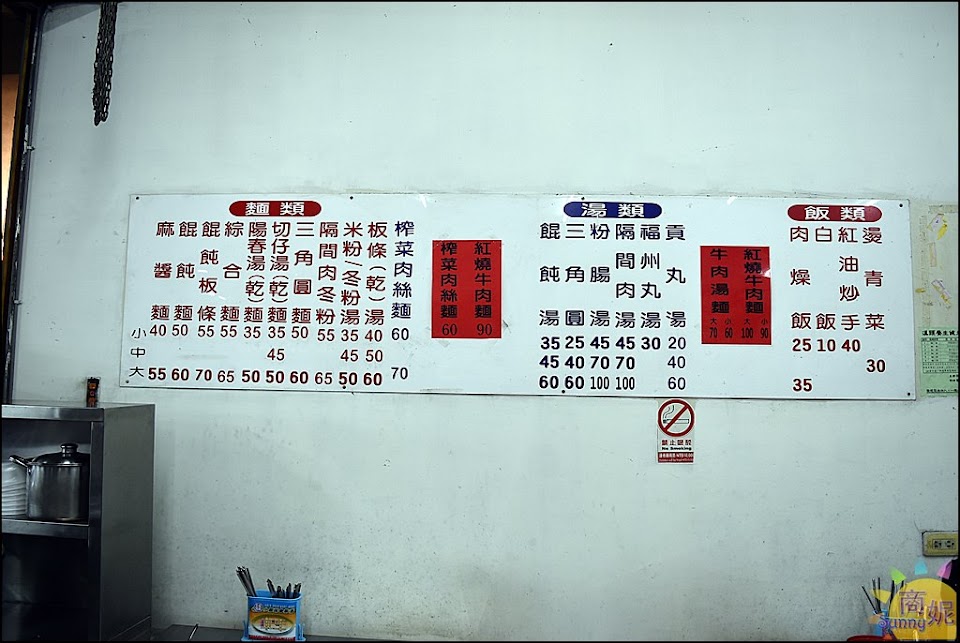 麵類
麻醬麵 40 55
餛飩麵 50 60
餛飩板條 55 70
綜合麵 55 65
陽春湯(乾)麵 35 50
切仔湯(乾)麵 35 45 50
三角圓麵 50 60
隔間肉冬粉 55 65
米粉/冬粉湯 35 45 50
板條(乾)湯 40 50 60
榨菜肉絲麵 60 70
小
中
大
榨菜肉絲麵 60
紅燒牛肉麵 90
湯類
餛飩湯 35 45 60
三角圓 25 40 60
粉腸湯 45 70 100
隔間肉湯 45 70 100
福州丸湯 30
貢丸湯 20 40 60
牛肉湯麵 大70 小60
紅燒牛肉麵 大100 小90
飯類
肉燥飯 25 35
白飯 10
紅油炒手 40
燙青菜 30
禁止吸菸
No Smoking
商妮
Sunny